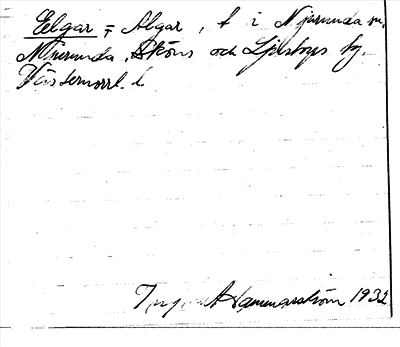 Elgar = Algar, t i Njurunda sn.
Njurunda, Sköns och Ljustorps tg.
Västernorrl. l.
Ingrid Hammarström 1932